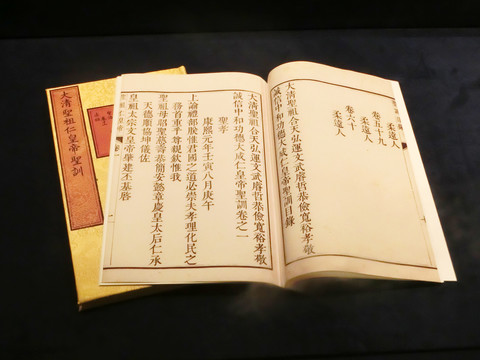 柔遠人
卷五十九
柔遠人
卷六十
柔遠人
大清聖祖合天弘運文武睿哲恭儉寬裕孝敬
誠信中和功德大成仁皇帝聖訓目錄
大清聖祖合天弘運文武睿哲恭儉寬裕孝敬
誠信中和功德大成仁皇帝聖訓卷之一
聖孝
康熙元年壬寅八月庚午
上諭禮部朕惟君國之道必崇夫孝理化民之
務首重乎尊親欽惟我
聖祖母昭聖慈壽恭簡安懿章慶皇太后仁承
天德順協坤儀佐
皇祖太宗文皇帝肇建丕基啓
聖祖仁皇帝
大清聖祖仁皇帝聖訓